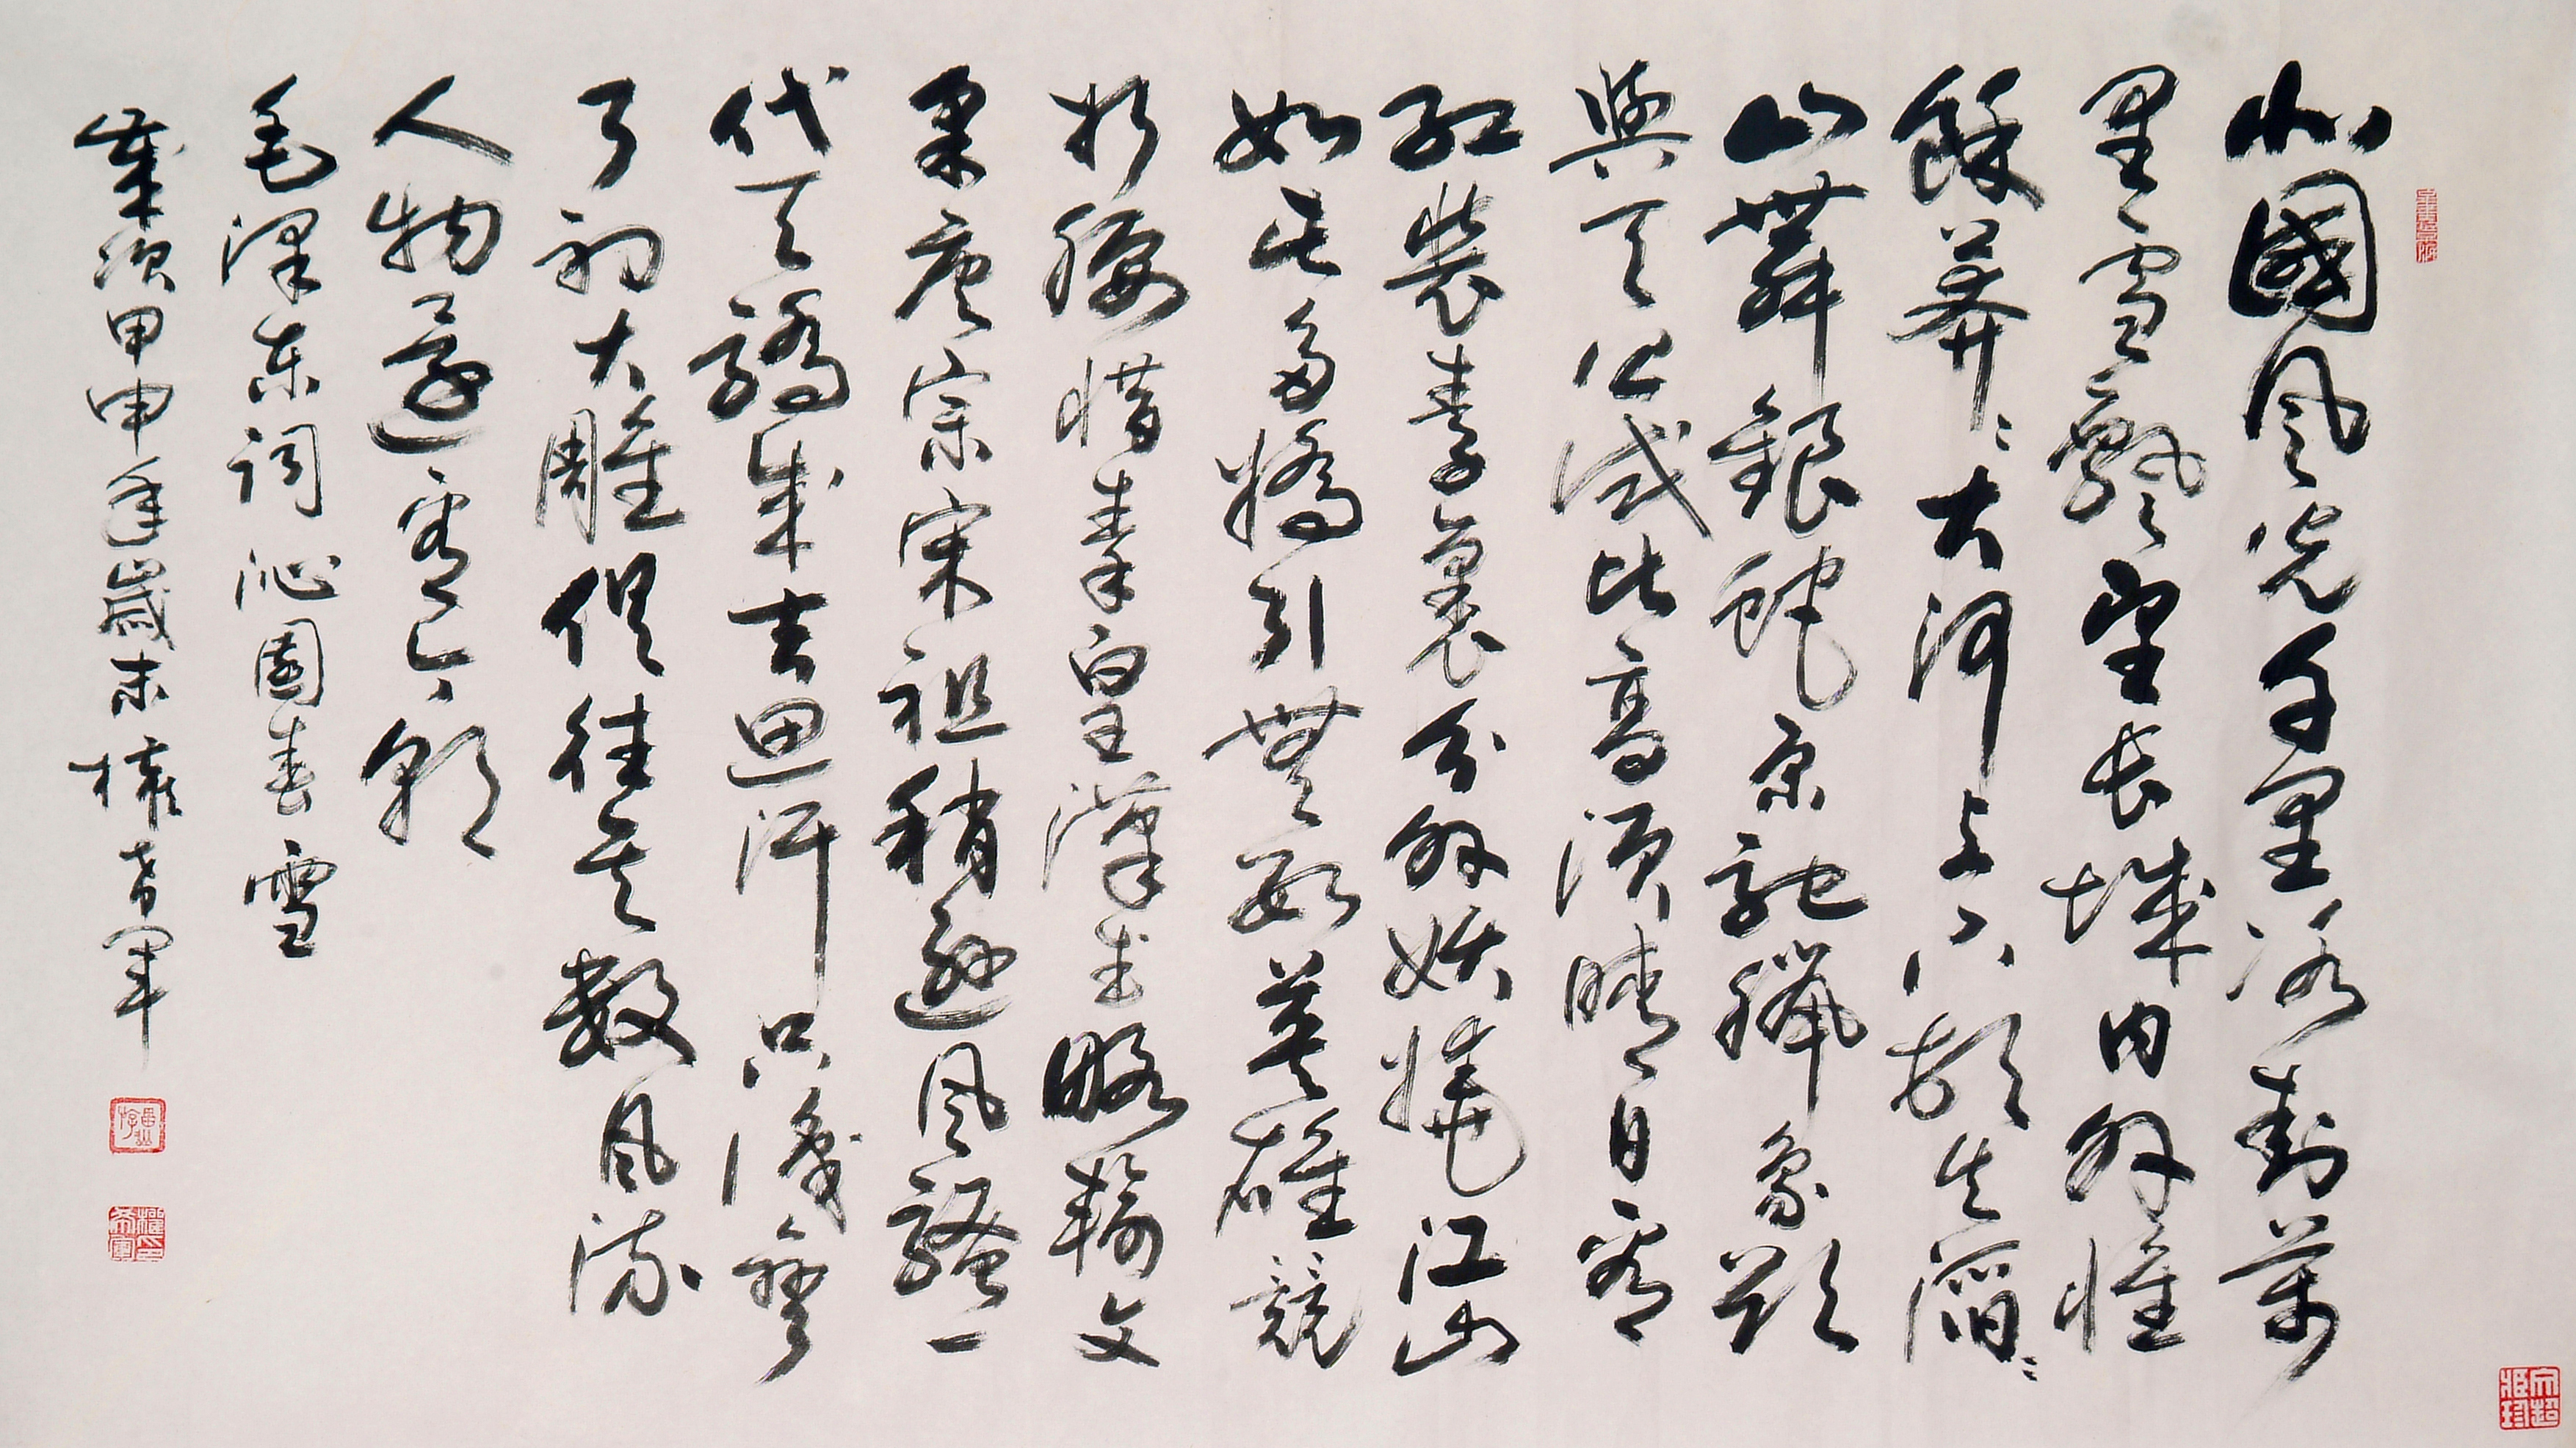 北國風光千里冰封萬
里雪飄望長城內外惟
餘莽〻大河上下頓失滔〻
山舞銀蛇原馳臘象欲
與天公試比高須晴日看
紅裝素裹分外妖嬈江山
如此多嬌引無數英雄競
折腰惜秦皇漢武略輸文
采唐宗宋祖稍遜風騷一
代天驕成吉思汗只識彎
弓射大雕俱往矣數風流
人物還看今朝
毛澤東詞沁園春雪
歲次甲申年歲末權希軍